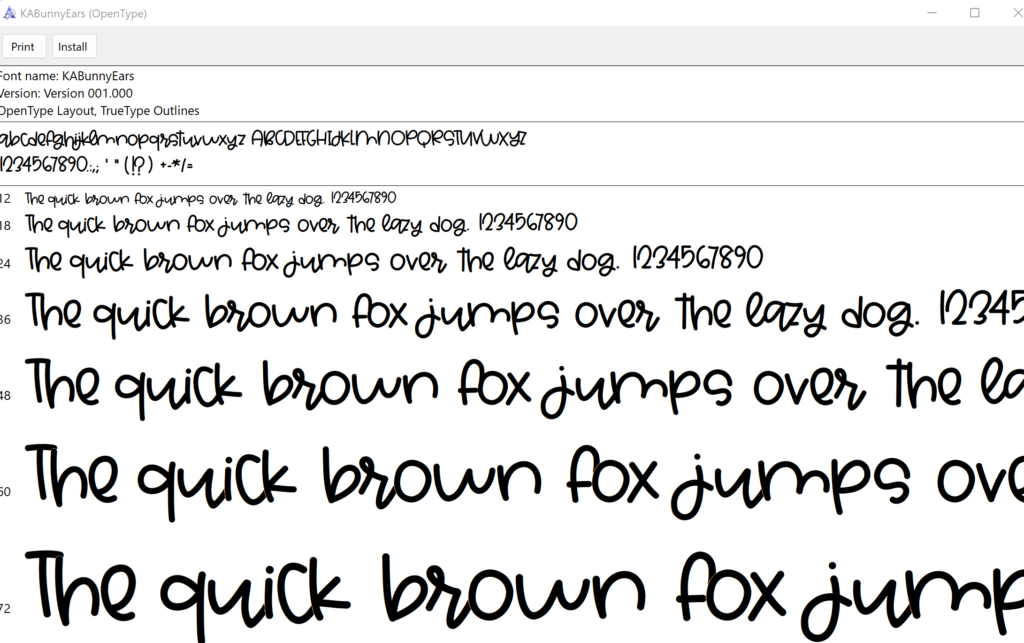 KABunnyEars (OpenType)
Print Install
Font name: KABunnyEars
Version: Version 001.000
OpenType Layout, TrueType Outlines
abcdefghijklmnopqrstuvwxyz ABCDEFGHIJKLMNOPQRSTUVWXYZ
1234567890.:,; ' " (!?) +-*/=
12 The quick brown fox jumps over the lazy dog. 1234567890
18 The quick brown fox jumps over the lazy dog. 1234567890
24 The quick brown fox jumps over the lazy dog. 1234567890
36 The quick brown fox jumps over the lazy dog. 12345
48 The quick brown fox jumps over the la
60 The quick brown fox jumps ove
72 The quick brown fox jump